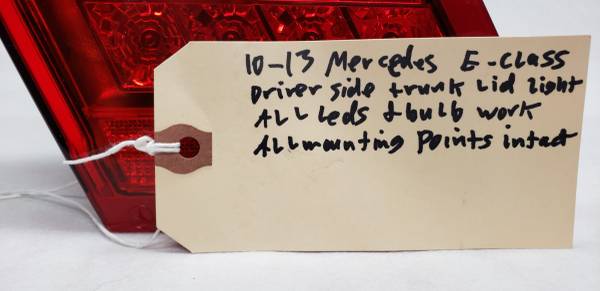 10-13 Mercedes E-class
Driver side trunk Lid light
ALL Leds & bulb work
ALL mounting Points intact